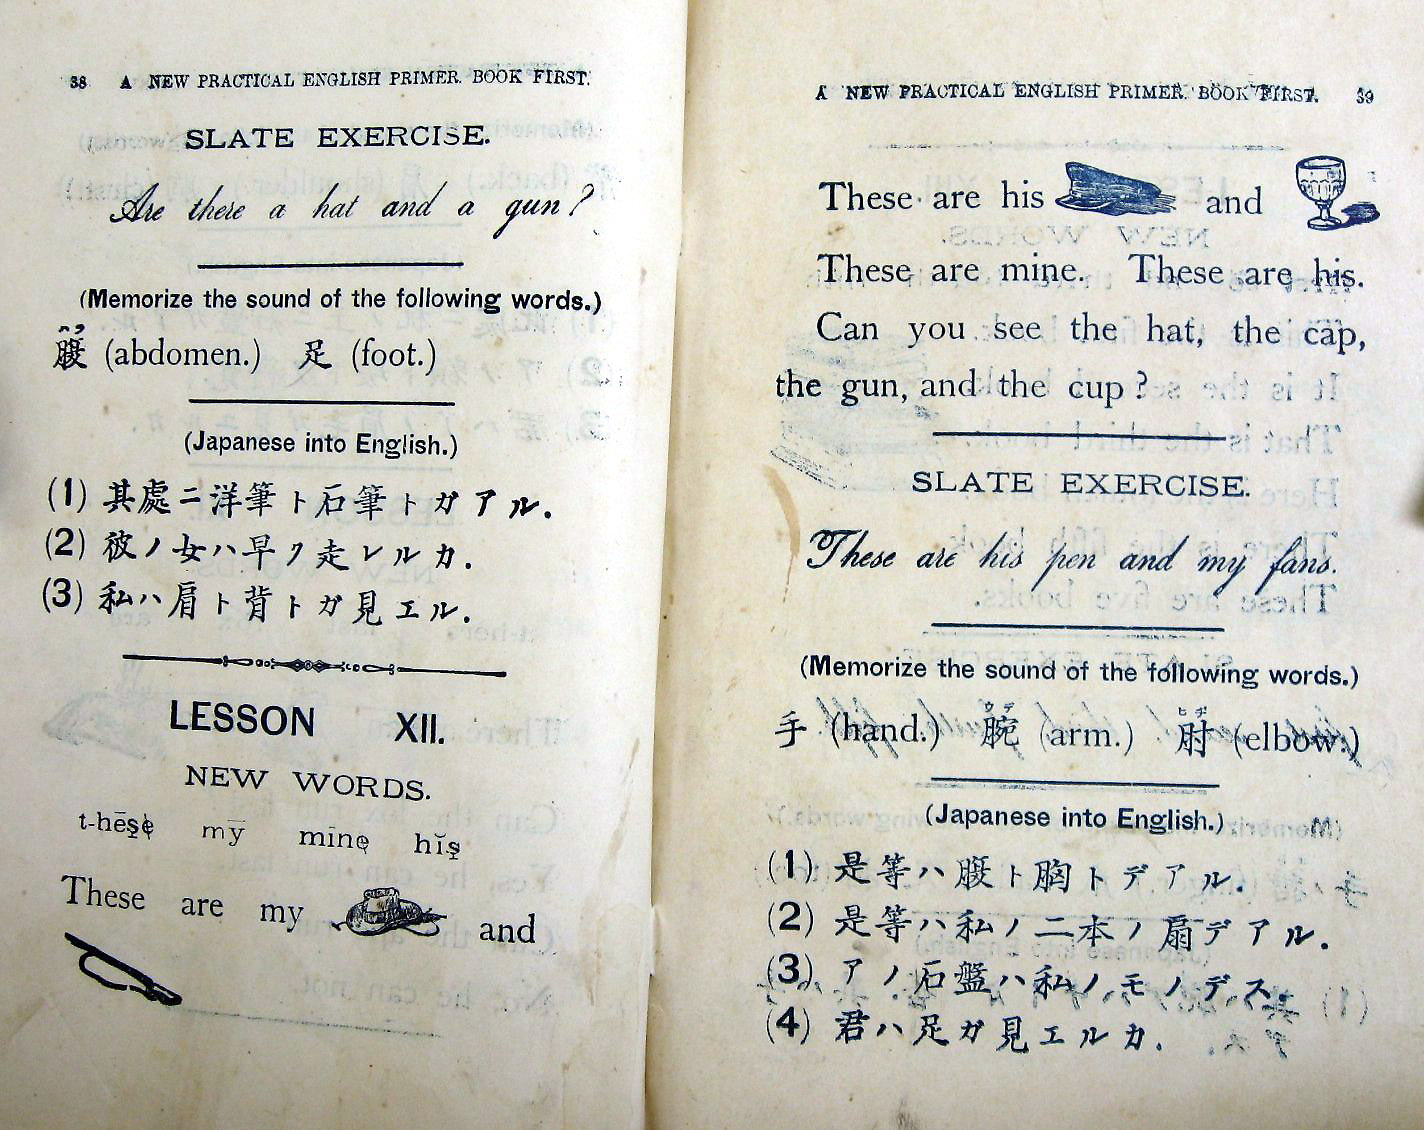 38 A NEW PRACTICAL ENGLISH PRIMER. BOOK FIRST.
SLATE EXERCISE.
Are there a hat and a gun?
(Memorize the sound of the following words.)
ハラ
腹 (abdomen.) 足 (foot.)
(Japanese into English.)
(1) 其處ニ洋筆ト石筆トガアル.
(2) 彼ノ女ハ早ク走レルカ.
(3) 私ハ肩ト背トガ見エル.
LESSON XII.
NEW WORDS.
t-hēse mȳ mīne hĭs
These are my and
A NEW PRACTICAL ENGLISH PRIMER. BOOK FIRST. 39
These are his and
These are mine. These are his.
Can you see the hat, the cap,
the gun, and the cup?
SLATE EXERCISE.
These are his pen and my fans.
(Memorize the sound of the following words.)
ウデ ヒヂ
手 (hand.) 腕 (arm.) 肘 (elbow.)
(Japanese into English.)
(1) 是等ハ腹ト胸トデアル.
(2) 是等ハ私ノ二本ノ扇デアル.
(3) アノ石盤ハ私ノモノデス.
(4) 君ハ足ガ見エルカ.